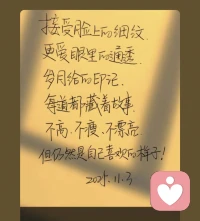 接受脸上的细纹
更爱眼里的通透
岁月给的印记
每道都藏着故事
不高、不瘦、不漂亮
但仍然是自己喜欢的样子!
2025.11.3